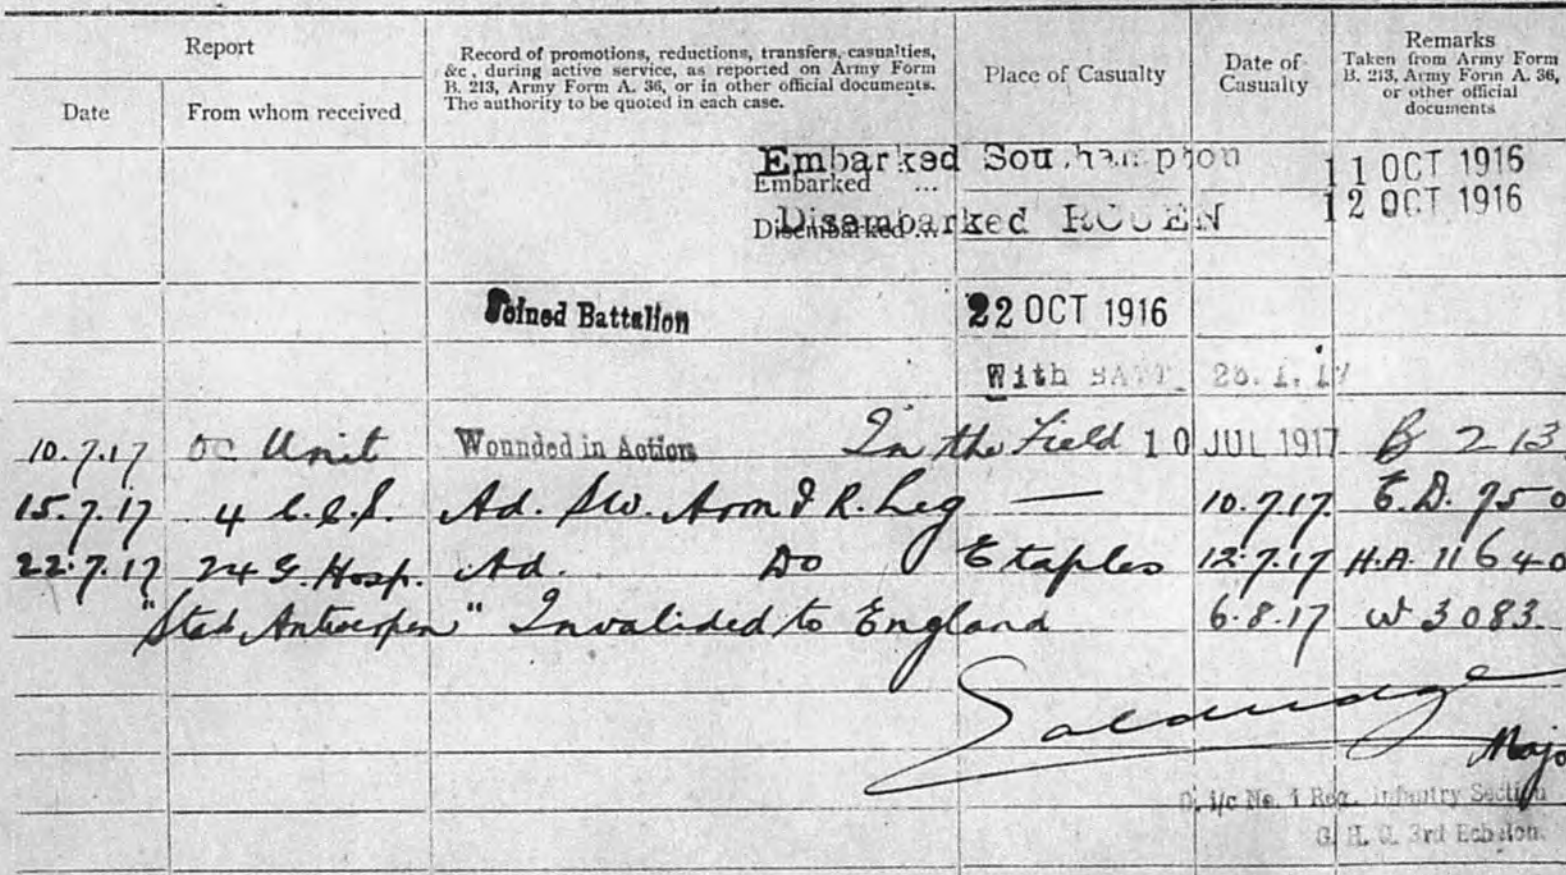 Report
Record of promotions, reductions, transfers, casualties, &c., during active service, as reported on Army Form B. 213, Army Form A. 36, or in other official documents. The authority to be quoted in each case.
Place of Casualty
Date of Casualty
Remarks Taken from Army Form B. 213, Army Form A. 36, or other official documents
Date
From whom received
Embarked Southampton 11 OCT 1916
Embarked ...
Disembarked ROUEN 12 OCT 1916
Disembarked ...
Joined Battalion 22 OCT 1916
With BATT
10.7.17 OC Unit Wounded in Action In the Field 10 JUL 1917 B 213
15.7.17 4 C.C.S. Ad. SW. Arm & R. Leg — 10.7.17. E.D. 950
22.7.17 24 G. Hosp. Ad. Do Etaples 12.7.17 H.A. 11640
"Stad Antwerpen" Invalided to England 6.8.17 W 3083
Majo
i/c No. 1 Reg. Infantry Section
G. H. Q. 3rd Echelon.